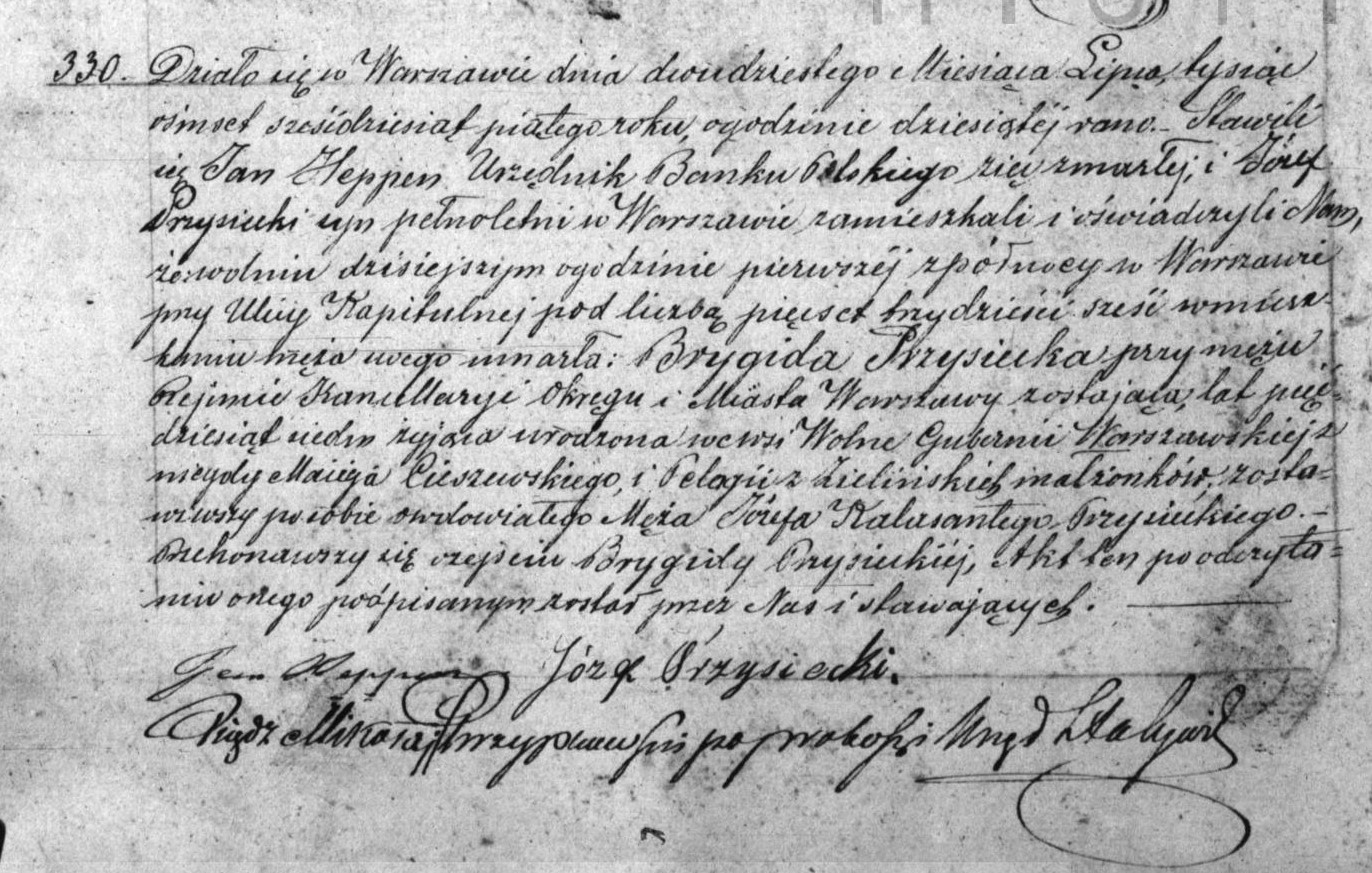 330. Działo się w Warszawie dnia dwudziestego Miesiąca Lipca, tysiąc
ośmset sześćdziesiąt piątego roku, o godzinie dziesiątéj rano. – Stawili
się Jan Heppen Urzędnik Banku Polskiego zięć zmarłej, i Józef
Przysiecki syn pełnoletni w Warszawie zamieszkali i oświadczyli Nam,
że w dniu dzisiejszym o godzinie pierwszéj z północy w Warszawie
przy Ulicy Kapitulnej pod liczbą pięćset trzydzieści sześć w miesz-
kaniu męża swego umarła: Brygida Przysiecka przy mężu
Rejencie Kancellaryi Okręgu i Miasta Warszawy zostająca, lat pięć-
dziesiąt siedm żyjąca urodzona we wsi Wolne Gubernii Warszawskiej z
niegdy Macieja Cieszewskiego, i Pelagii z Zielińskich małżonków, zosta-
wiwszy po sobie owdowiałego Męża Józefa Kalasantego Przysieckiego. –
Przekonawszy się o zejściu Brygidy Przysieckiéj, Akt ten po odczyta-
niu onego podpisanym został przez Nas i stawających.
Jan Heppen Józef Przysiecki.
Xiądz Mikołaj